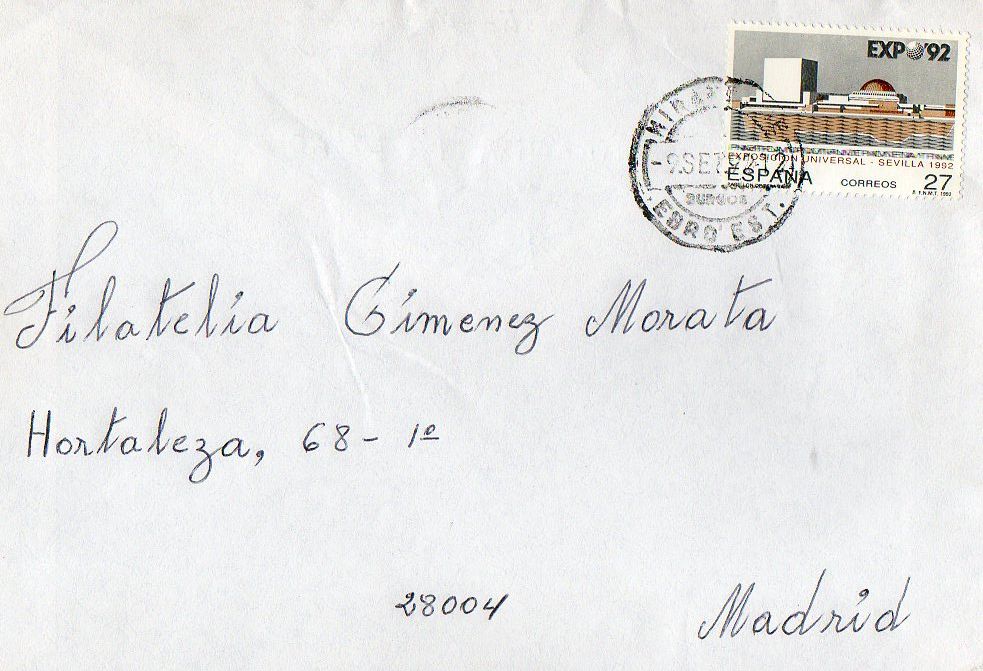 EXPO'92
EXPOSICION UNIVERSAL - SEVILLA 1992
ESPAÑA CORREOS 27
F.N.M.T. 1992
EBRO EST.
BURGOS
Filatelia Gimenez Morata
Hortaleza, 68 - 1º
28004 Madrid